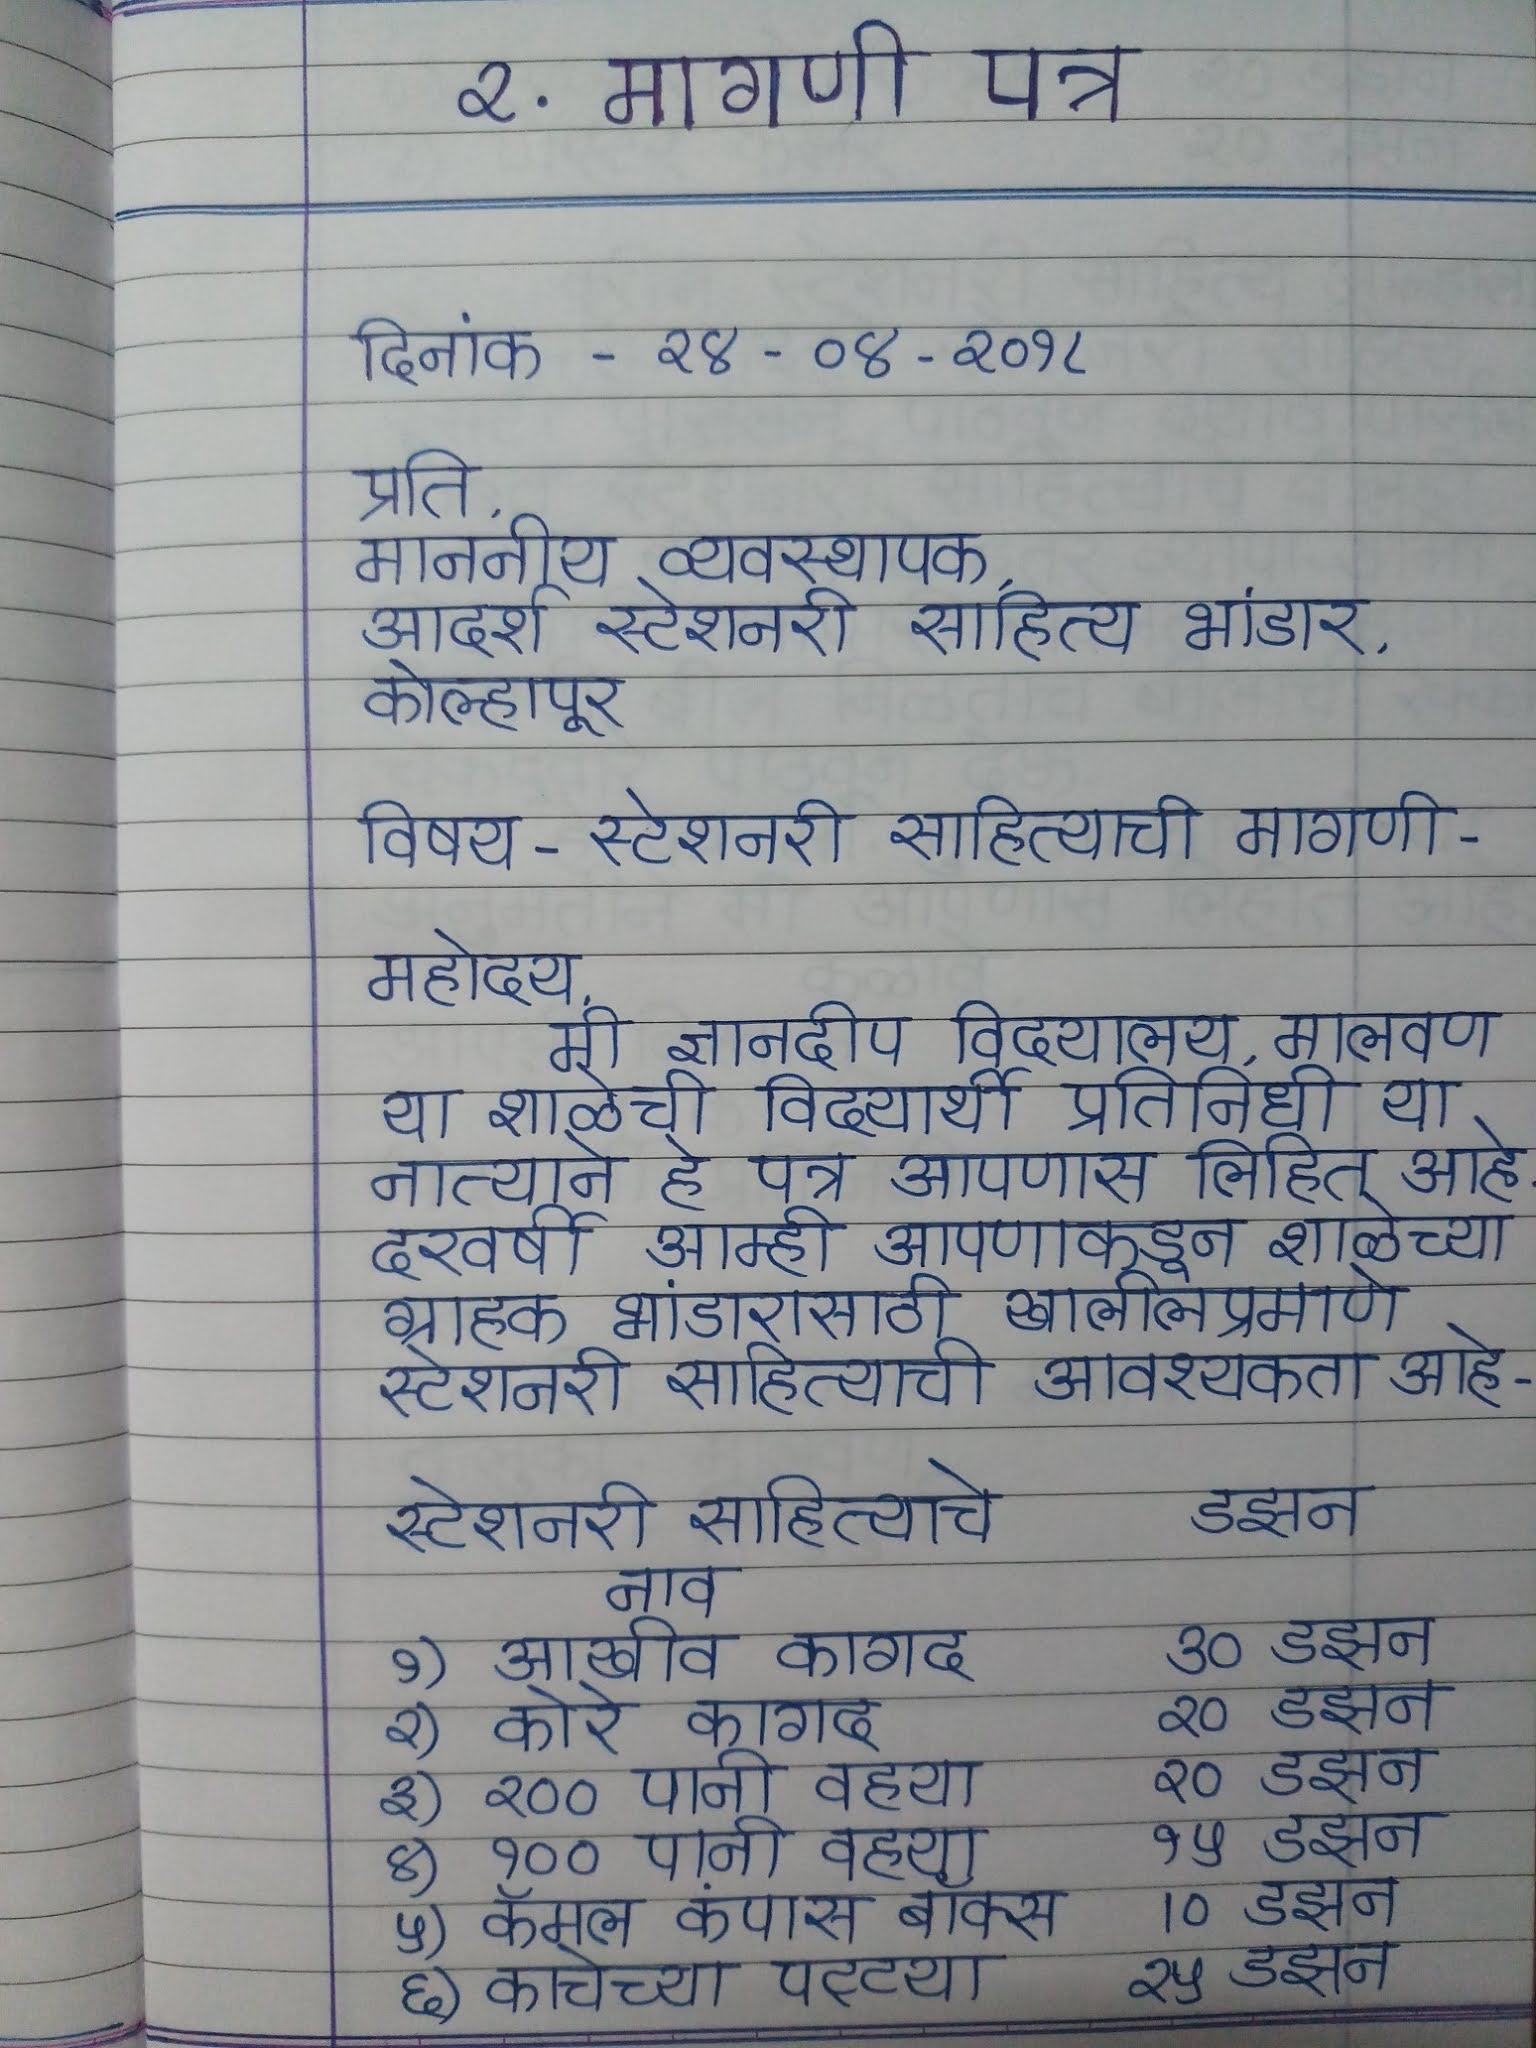 २. मागणी पत्र
दिनांक - २४ - ०४ - २०१८
प्रति,
माननीय व्यवस्थापक,
आदर्श स्टेशनरी साहित्य भांडार,
कोल्हापूर
विषय - स्टेशनरी साहित्याची मागणी -
महोदय,
मी ज्ञानदीप विद्यालय, मालवण
या शाळेची विद्यार्थी प्रतिनिधी या
नात्याने हे पत्र आपणास लिहित आहे.
दरवर्षी आम्ही आपणाकडून शाळेच्या
ग्राहक भांडारासाठी खालीलप्रमाणे
स्टेशनरी साहित्याची आवश्यकता आहे-
स्टेशनरी साहित्याचे डझन
नाव
१) आखीव कागद ३० डझन
२) कोरे कागद २० डझन
३) २०० पानी वहया २० डझन
४) १०० पानी वहया १५ डझन
५) कॅमल कंपास बॉक्स 10 डझन
६) काचेच्या पट्टया २५ डझन